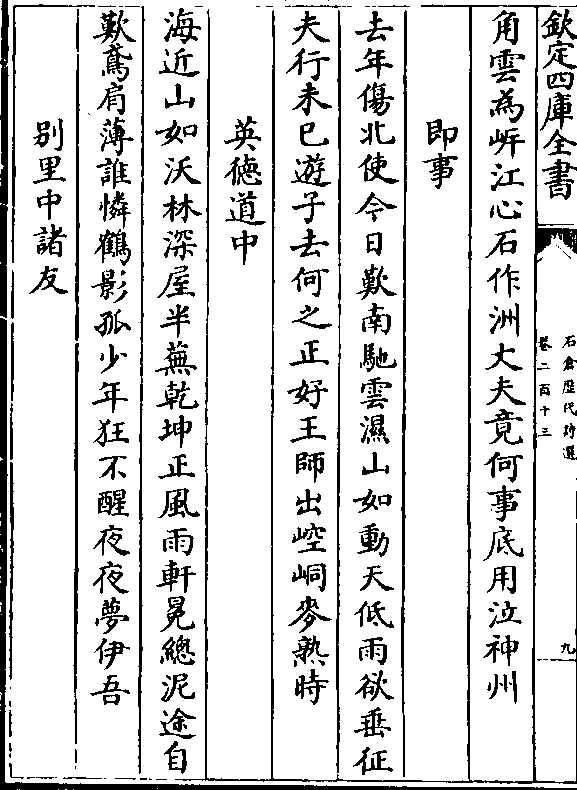 欽定四庫全書
石倉歷代詩選
卷二百十三
九
角雲為㟁江心石作洲大夫竟何事底用泣神州
即事
去年傷北使今日歎南馳雲濕山如動天低雨欲垂征
夫行未已遊子去何之正好王師出崆峒麥熟時
英德道中
海近山如沃林深屋半蕪乾坤正風雨軒冕總泥途自
歎鳶肩薄誰憐鶴影孤少年狂不醒夜夜夢伊吾
别里中諸友